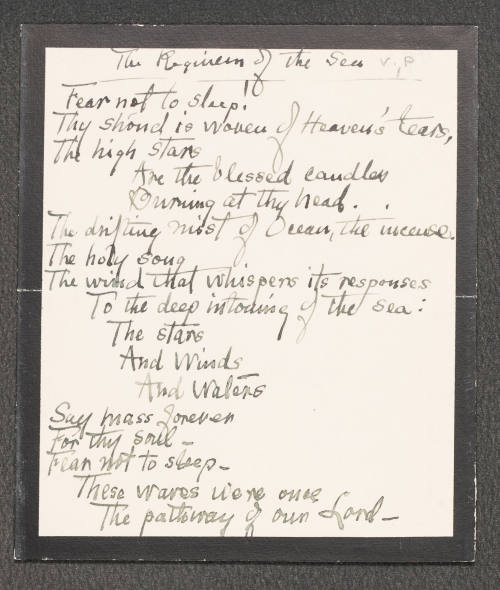 The Requiem of the Sea V.P
Fear not to sleep!
Thy shroud is woven of Heaven's tears,
The high stars
Are the blessed candles
Burning at thy head. .
The drifting mist of Ocean, the incense.
The holy song
The wind that whispers its responses
To the deep intoning of the sea:
The stars
And Winds
And Waters
Say mass forever
For thy soul -
Fear not to sleep -
These waves were once
The pathway of our Lord -